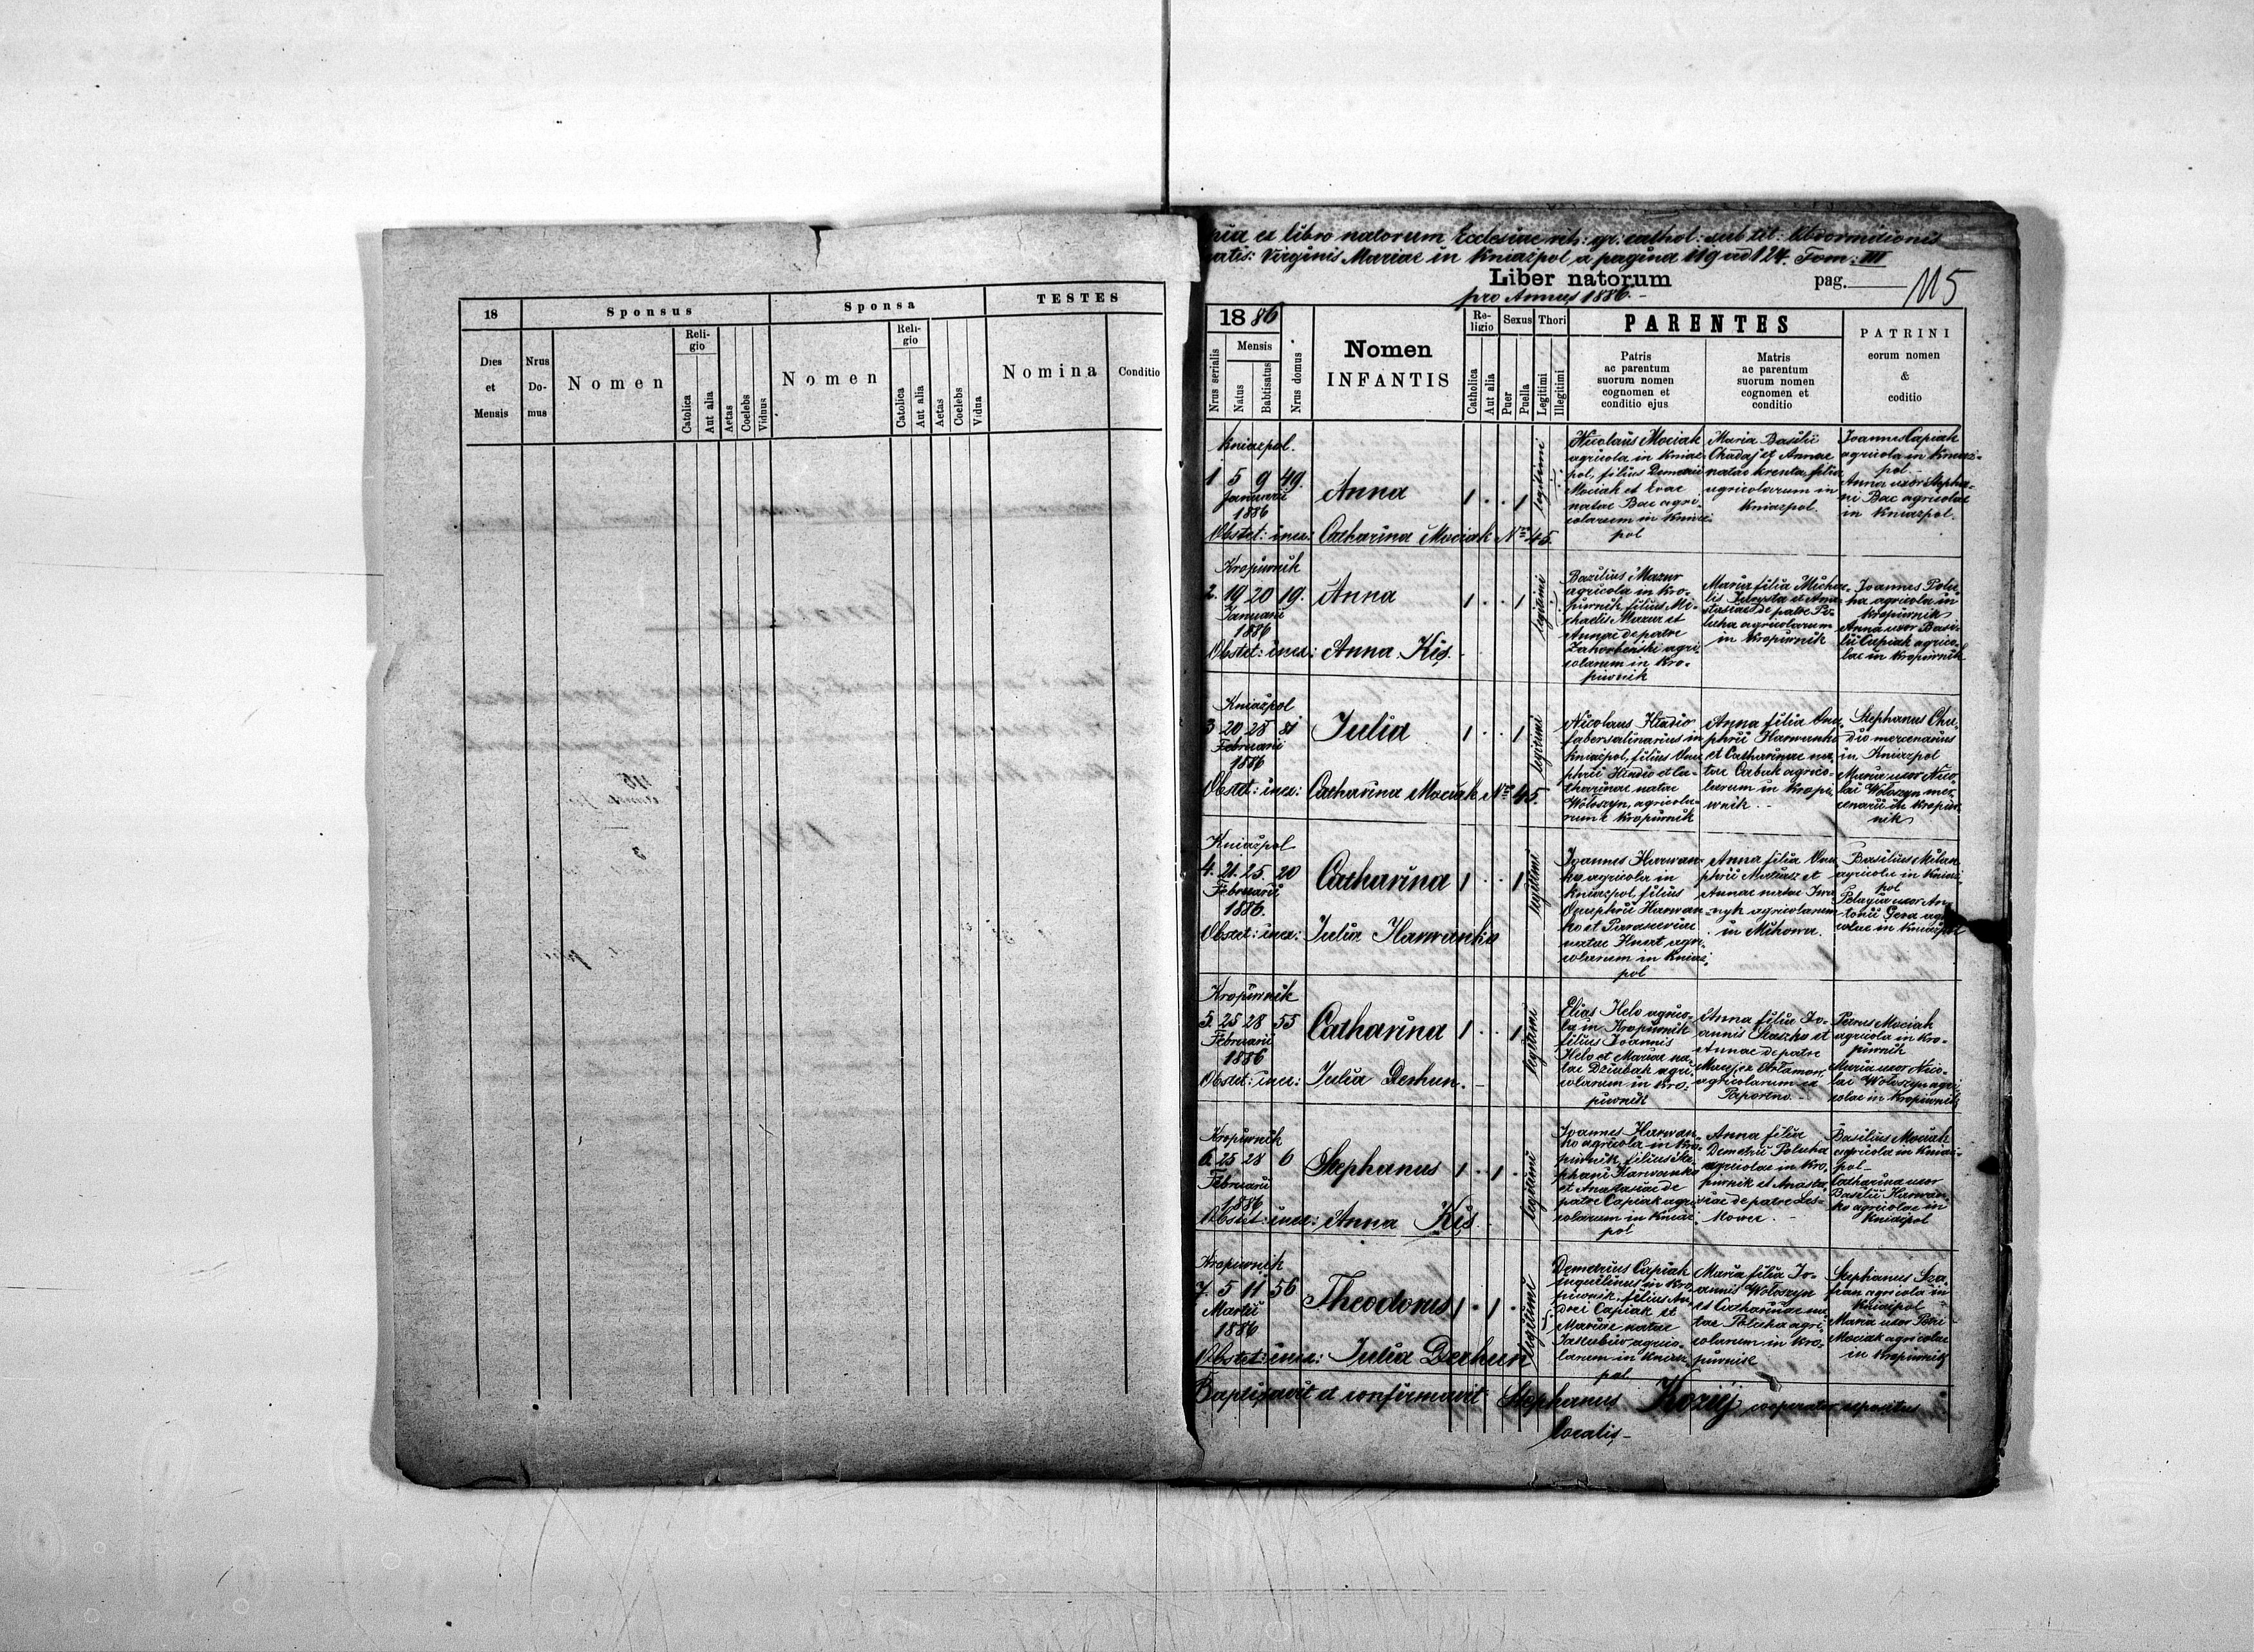 18
Sponsus
Sponsa
TESTES
Dies et Mensis
Nrus Domus
Nomen
Religio
Catolica
Aut alia
Aetas
Coelebs
Viduus
Nomen
Religio
Catolica
Aut alia
Aetas
Coelebs
Vidua
Nomina
Conditio
ex libro natorum Ecclesiae rit: gr. cathol: sub tit:
Virginis Mariae in Kniaźpol a pagina 119 ad 124. Tom: III
Liber natorum
pag.
115
pro Annus 1886.-
1886
Nrus serialis
Mensis
Natus
Babtisatus
Nrus domus
Nomen
INFANTIS
Religio
Catholica
Aut alia
Sexus
Puer
Puella
Thori
Legitimi
Illegitimi
PARENTES
Patris
ac parentum
suorum nomen
cognomen et
conditio ejus
Matris
ac parentum
suorum nomen
cognomen et
conditio
PATRINI
eorum nomen
&
coditio
Kniazpol.
1 5 9 49.
Januarii
1886
Anna
1 . . 1
legitimi
Nicolaus Mociak
agricola in Kniaz-
pol, filius Demetrii
Mociak et Evae
natae Bac agri-
colarum in Kniaz-
pol
Maria Basilii
et Annae
natae Krenta, filia
agricolarum in
Kniazpol.
Joannes Capiak
agricola in Kniaz-
pol.-
Anna uxor Stepha-
ni Bac agricolae
in Kniazpol.
Obstet: inex: Catharina Mociak Nro 45.
Kropiwnik
2. 19 20 19.
Januarii
1886
Anna
1 . . 1
legitimi
Basilius Mazur
agricola in Kro-
piwnik filius Mi-
chaelis Mazur et
Annae de patre
agri-
colarum in Kro-
piwnik
Maria filia Micha-
lis et Ana-
stasiae de patre Po-
lucha agricolarum
in Kropiwnik
Joannes Polu-
cha agricola in
Kropiwnik
Anna uxor Basi-
lii Capiak agrico-
lae in Kropiwnik
Obstet: inex: Anna Kiś.
Kniaźpol
3 20 28 81
Februarii
1886
Julia
1 . . 1
legitimi
Nicolaus Hladio
faber salinarius in
Kniazpol, filius Onu-
phrii Hladio et Ca-
tharinae natae
Wołoszyn, agricola-
rum Kropiwnik
Anna filia Onu-
phrii Harwanko
et Catharinae na-
tae Cabak agrico-
larum in Kropi-
wnik.-
Stephanus
mercenarius
in Kniazpol
Maria uxor Nico-
lai Wołoszyn mer-
cenarii in Kropiw-
nik
Obstet: inex: Catharina Mociak Nro 45.
Kniaźpol
4. 21. 25. 20
Februarii
1886.
Catharina
1 . . 1
legitimi
Joannes Harwan-
ko agricola in
Kniazpol, filius
Onuphrii Harwan-
ko et Parasceviae
natae Hnat agri-
colarum in Kniaz-
pol
Anna filia Onu-
phrii et
Annae natae Iwa-
nyk agricolarum
in Mihowa.
Basilius Milan
agricola in Kniaz-
pol
Pelagia uxor An-
tonii Gera agri-
colae in Kniazpol
Obstet: inex: Julia Harwanko
Kropiwnik
5. 25 28 55
Februarii
1886
Catharina
1 . . 1
legitimi
Elias Helo agrico-
la in Kropiwnik
filius Joannis
Helo et Mariae na-
tae Dziubak agri-
colarum in Kro-
piwnik
Anna filia Jo-
annis Staszko et
Annae de patre
agricolarum ex
Paportno.-
Petrus Mociak
agricola in Kro-
piwnik
Maria uxor Nico-
lai Wołoszyn agri-
colae in Kropiwnik
Obstet: inex: Julia Derhun.-
Kropiwnik
6. 25 28 6
Februarii
1886
Stephanus
1 . 1 .
legitimi
Joannes Harwan-
ko agricola in Kro-
piwnik, filius Ste-
phani Harwanko
et Anastasiae de
patre Capiak agri-
colarum in Kniaz-
pol
Anna filia
Demetrii Polucha
agricolae in Kro-
piwnik et Anasta-
siae de patre Les-
kowec.-
Basilius Mociak
agricola in Kniaz-
pol-
Catharina uxor
Basilii Harwan-
ko agricolae in
Kniazpol
Obstet: inex: Anna Kiś
Kropiwnik
7. 5 11 56
Martii
1886
Theodorus
1 . 1 .
legitimi
Demetrius Capiak
inquilinus in Kro-
piwnik, filius An-
drei Capiak et
Mariae natae
agrico-
larum in Kniaz-
pol
Maria filia Jo-
annis Wołoszyn
et Catharinae na-
tae Polucha agri-
colarum in Kro-
piwnik
Stephanus Sza-
fran agricola in
Kniazpol
Maria uxor Petri
Mociak agricolae
in Kropiwnik
Obstet: inex: Julia Derhun
Baptisavit et confirmavit Stephanus Kozij cooperator expositus
localis-